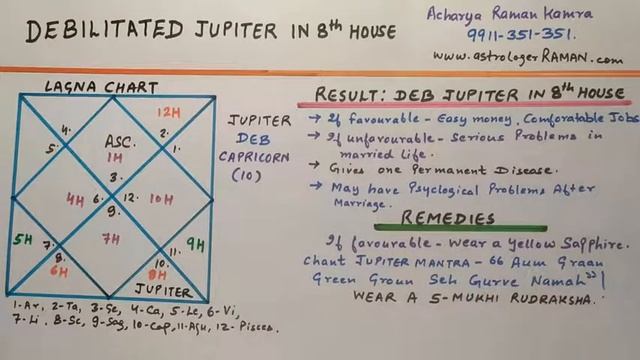 DEBILITATED JUPITER IN 8th HOUSE
Acharya Raman Kamra
9911-351-351.
www.astrologerRAMAN.com
LAGNA CHART
12H
4.
ASC.
2.
5.
1H
1.
3.
4H
6.
12.
10H
9.
5H
7.
7H
11.
9H
8.
10.
6H
8H
JUPITER
JUPITER
DEB
CAPRICORN
(10)
1-Ar, 2-Ta, 3-Ge, 4-Ca, 5-Le, 6-Vi,
7-Li. 8-Sc, 9-Sag, 10-Cap, 11-Aqu, 12-Pisces.
RESULT: DEB JUPITER IN 8th HOUSE
→ If favourable - Easy money, Comforatable Jobs
→ If unfavourable - Serious Problems in
married life.
→ Gives one Permanent Disease.
→ May have Psyclogical Problems After
Marriage.
REMEDIES
If favourable - Wear a Yellow Sapphire.
Chant JUPITER MANTRA - 66 Aum Graan
Green Groun Seh Gurve Namah" |
WEAR A 5-MUKHI RUDRAKSHA.